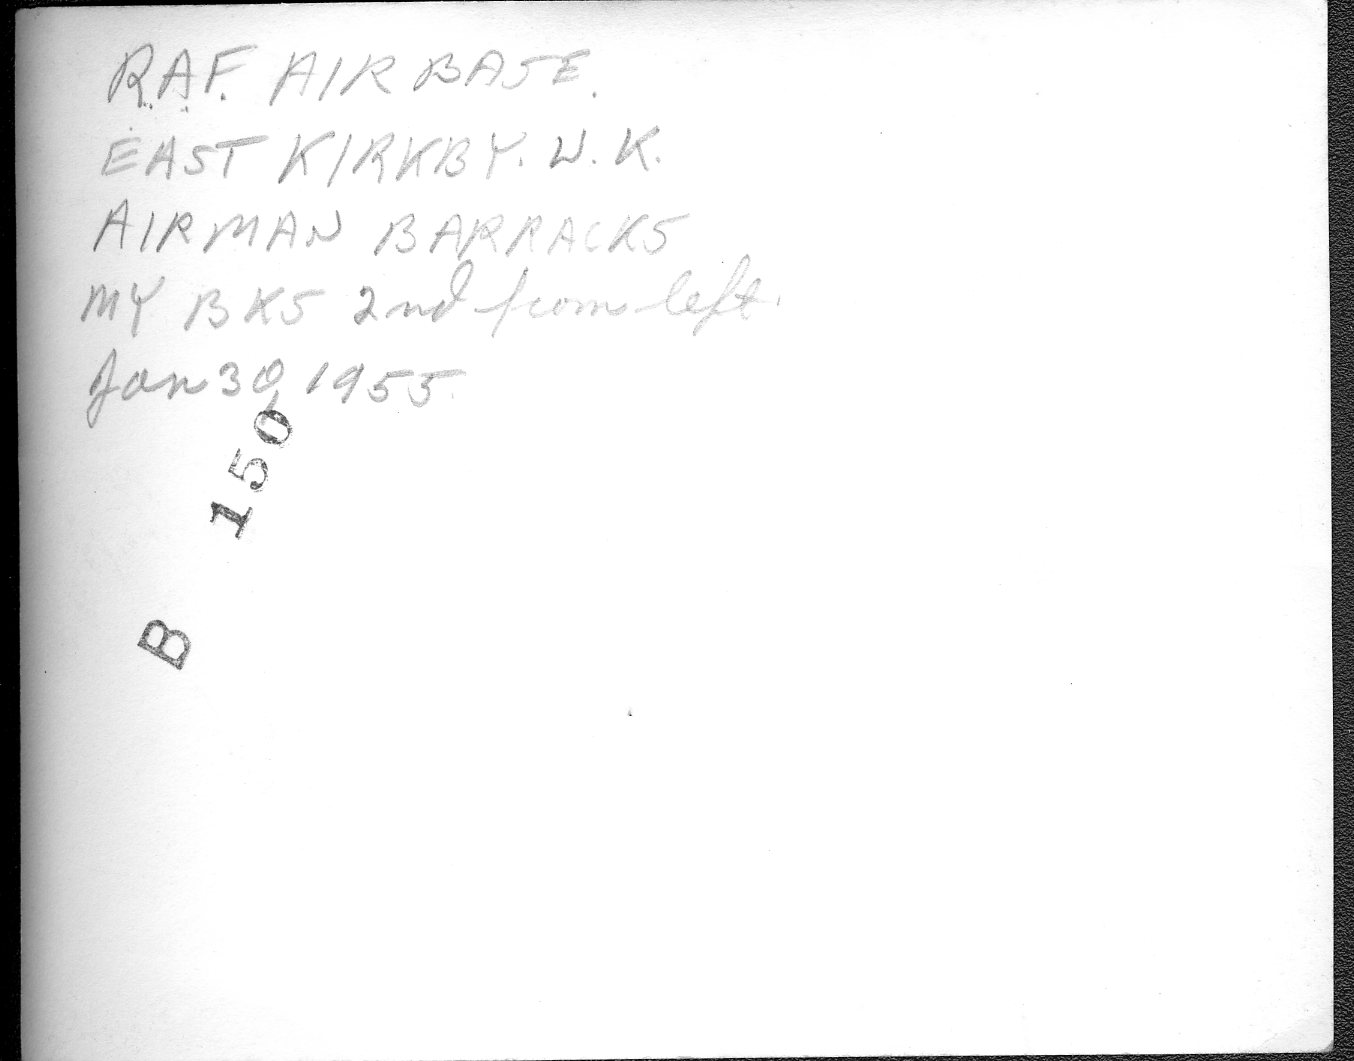 R.A.F. AIR BASE.
EAST KIRKBY. U.K.
AIRMAN BARRACKS
MY BKS 2nd from left.
Jan 30, 1955.
B 150